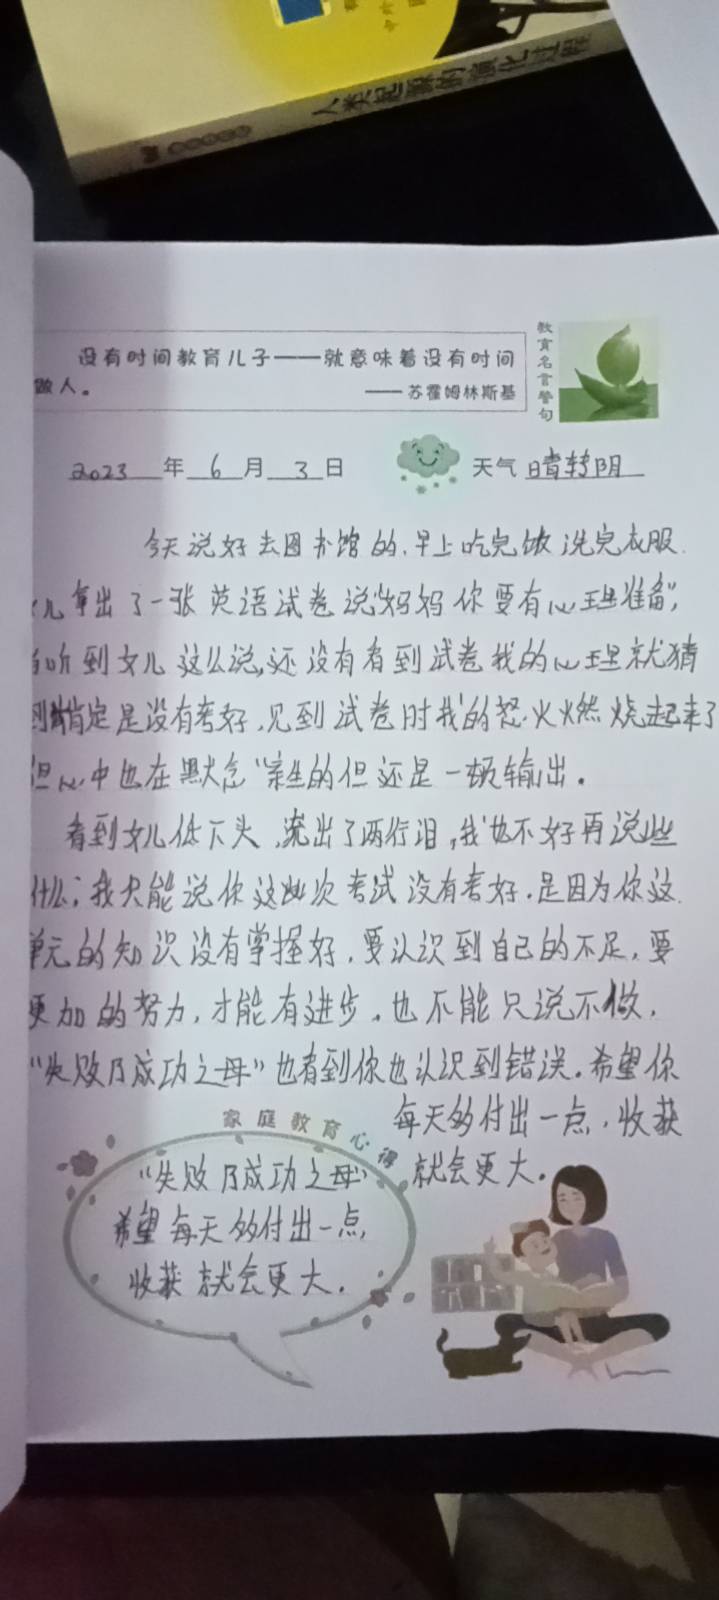 人类起源的演化过程
没有时间教育儿子——就意味着没有时间
做人。
——苏霍姆林斯基
教育名言警句
2023年6月3日 天气 晴转阴
今天说好去图书馆的.早上吃完饭洗完衣服.
女儿拿出了一张英语试卷说"妈妈你要有心理准备",
当听到女儿这么说,还没有看到试卷我的心理就猜
到肯定是没有考好.见到试卷时我的怒火燃烧起来了
但心中也在默念"亲生的但还是一顿输出。
看到女儿低下头,流出了两行泪,我也不好再说些
什么;我只能说你这次考试没有考好.是因为你这
单元的知识没有掌握好,要认识到自己的不足,要
更加的努力,才能有进步。也不能只说不做,
"失败乃成功之母"也看到你也认识到错误。希望你
每天多付出一点,收获
就会更大。
家庭教育心得
"失败乃成功之母"
希望每天多付出一点,
收获就会更大.